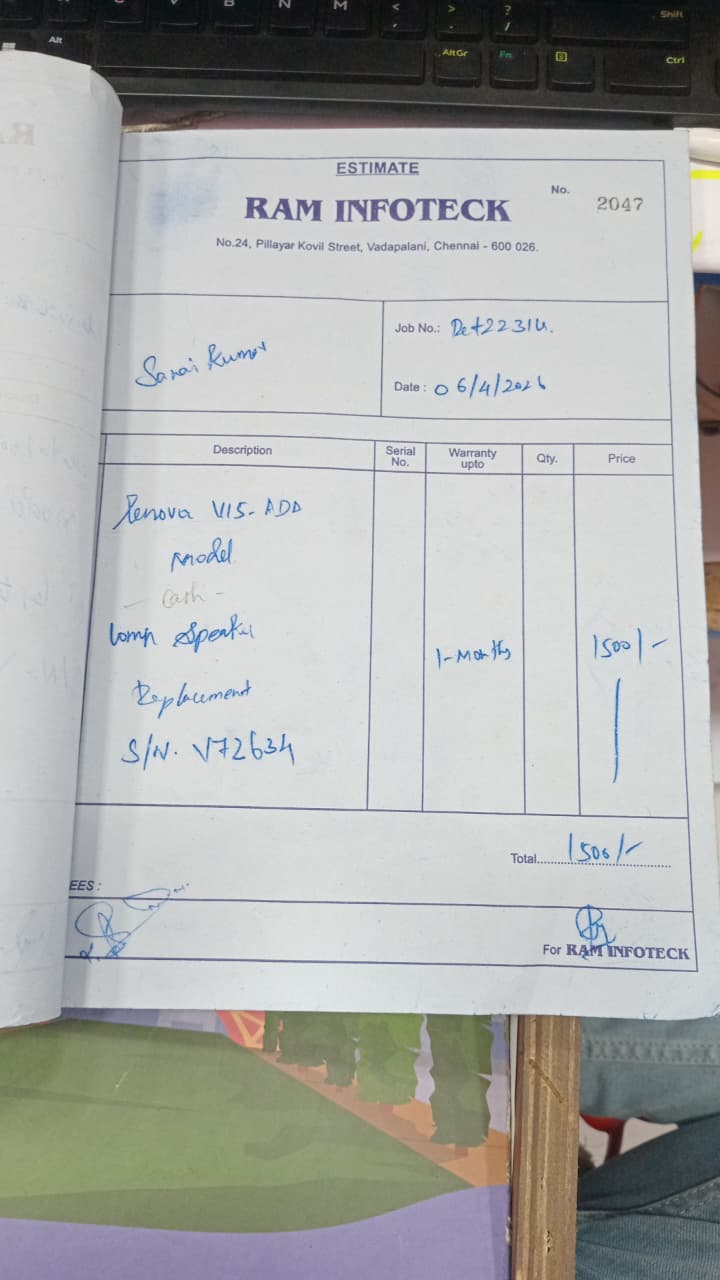 ESTIMATE
RAM INFOTECK
No. 2047
No.24, Pillayar Kovil Street, Vadapalani, Chennai - 600 026.
Kumar
Job No.:
Date : 06/4/2026
Description Serial No. Warranty upto Qty. Price
Lenova V15-ADA
Model
- Cash -
Speaker
1-Months 1500/-
Replacement
S/N. V72634
Total 1500/-
EES :
For RAM INFOTECK
Alt
B N M < , > . ? /
Shift
AltGr Fn Ctrl